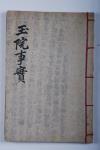 玉院事實